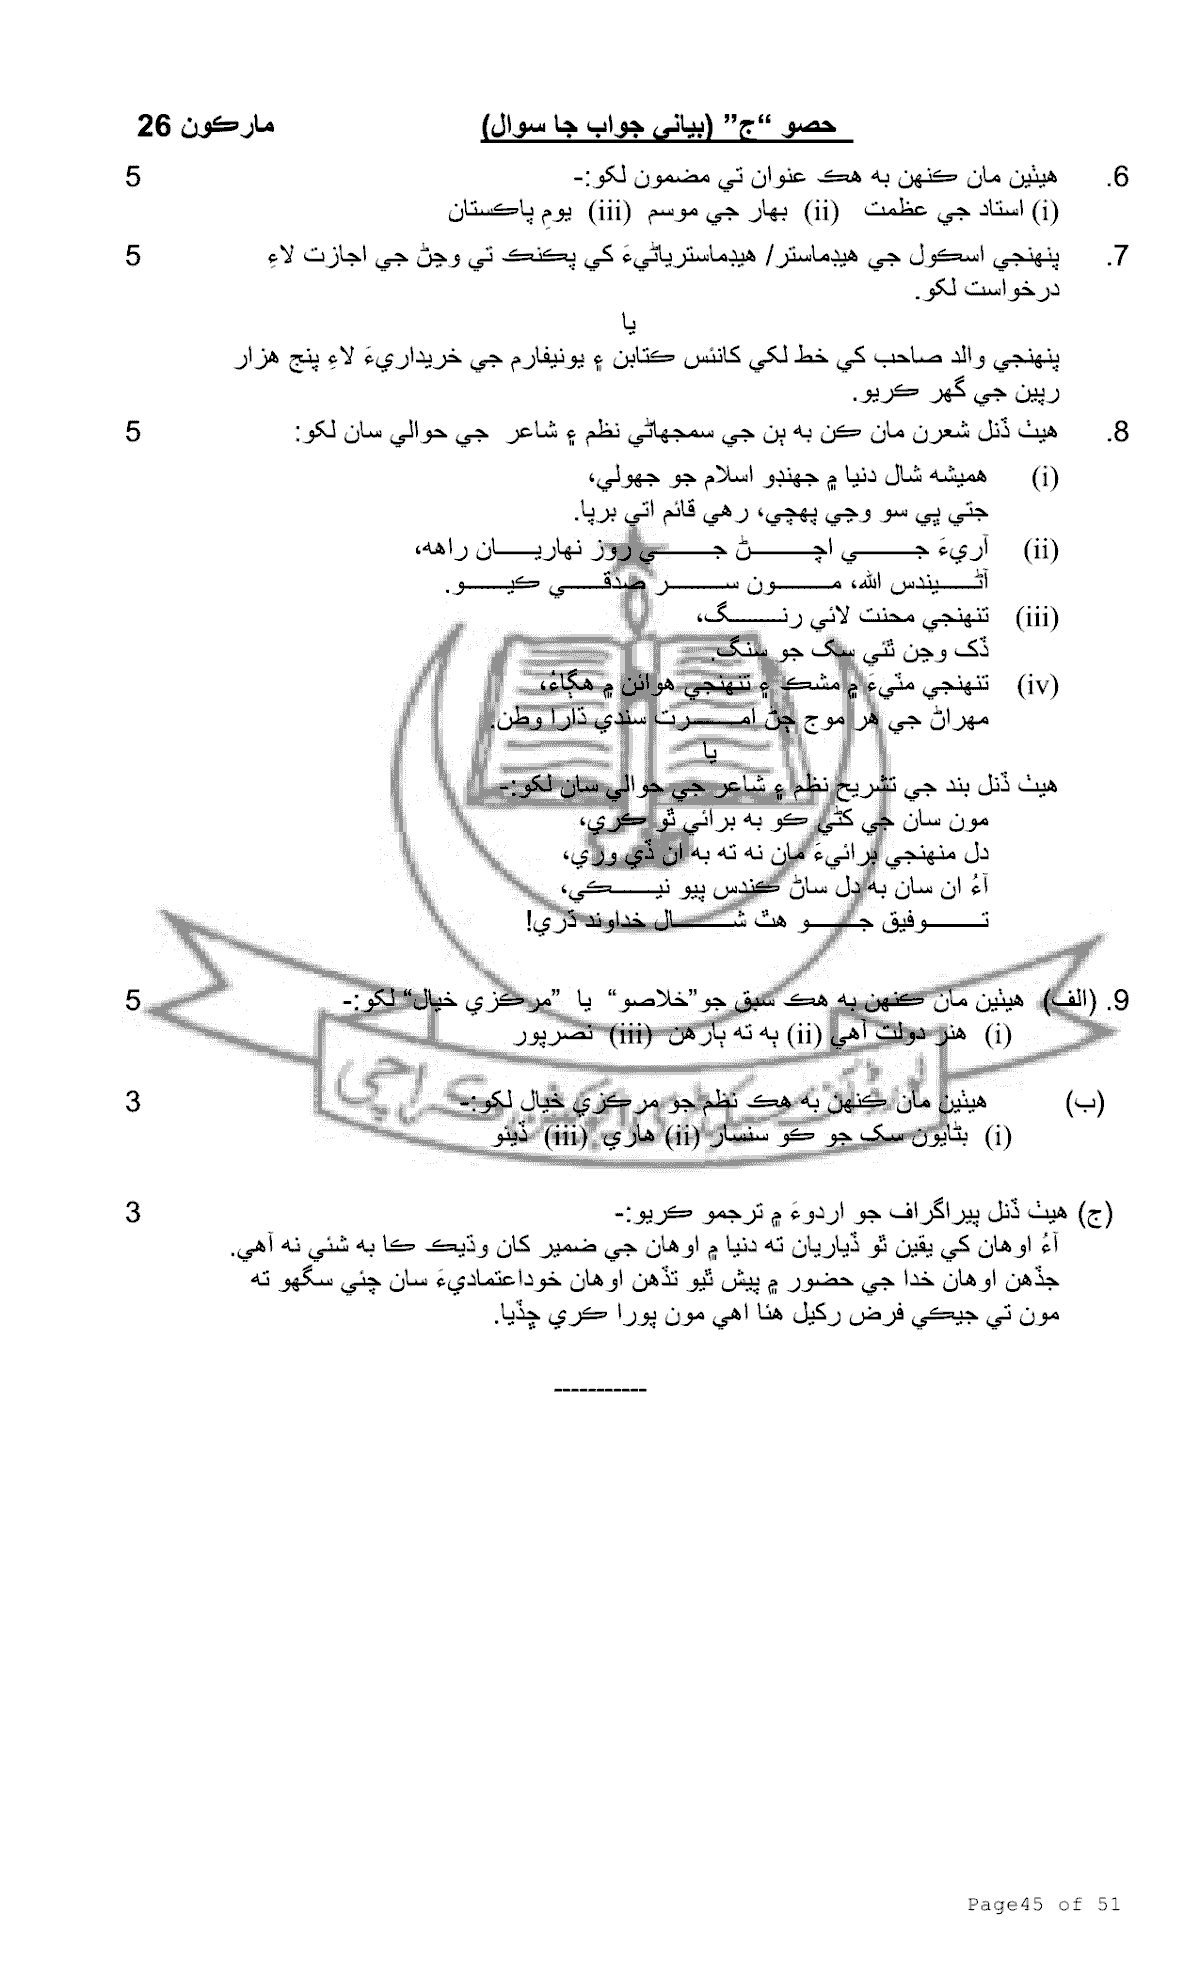 حصو “ج” (بياني جواب جا سوال) مارڪون 26
6. هيٺين مان ڪنهن به هڪ عنوان تي مضمون لکو:- 5
(i) استاد جي عظمت (ii) بهار جي موسم (iii) يومِ پاڪستان
7. پنهنجي اسڪول جي هيڊماستر/ هيڊماسترياڻيءَ کي پڪنڪ تي وڃڻ جي اجازت لاءِ 5
درخواست لکو.
يا
پنهنجي والد صاحب کي خط لکي کانئس ڪتابن ۽ يونيفارم جي خريداريءَ لاءِ پنج هزار
رپين جي گهر ڪريو.
8. هيٺ ڏنل شعرن مان ڪن به ٻن جي سمجهاڻي نظم ۽ شاعر جي حوالي سان لکو: 5
(i) هميشه شال دنيا ۾ جهنڊو اسلام جو جهولي،
جتي ڀي سو وڃي پهچي، رهي قائم اتي برپا.
(ii) آريءَ جـــــي اچـــــڻ جـــــي روز نهاريـــــان راهه،
آڻـــــيندس الله، مـــــون ســـــر صدقـــــي ڪيـــــو.
(iii) تنهنجي محنت لائي رنـــــگ،
ڏک وڃن ٿئي سک جو سنگ.
(iv) تنهنجي مٽيءَ ۾ مشڪ ۽ تنهنجي هوائن ۾ هڳاءُ،
مهراڻ جي هر موج ڄڻ امـــــرت سندي ڌارا وطن.
يا
هيٺ ڏنل بند جي تشريح نظم ۽ شاعر جي حوالي سان لکو:-
مون سان جي کڻي ڪو به برائي ٿو ڪري،
دل منهنجي برائيءَ مان نه ته به ان ڏي وري،
آءُ ان سان به دل ساڻ ڪندس پيو نيـــــڪي،
تـــــوفيق جـــــو هٿ شـــــال خداوند ڌري!
9. (الف) هيٺين مان ڪنهن به هڪ سبق جو”خلاصو“ يا ”مرڪزي خيال“ لکو:- 5
(i) هنر دولت آهي (ii) ٻه ته ٻارهن (iii) نصرپور
(ب) هيٺين مان ڪنهن به هڪ نظم جو مرڪزي خيال لکو:- 3
(i) بڻايون سک جو ڪو سنسار (ii) هاري (iii) ڏيئو
(ج) هيٺ ڏنل پيراگراف جو اردوءَ ۾ ترجمو ڪريو:- 3
آءُ اوهان کي يقين ٿو ڏياريان ته دنيا ۾ اوهان جي ضمير کان وڌيڪ ڪا به شئي نه آهي.
جڏهن اوهان خدا جي حضور ۾ پيش ٿيو تڏهن اوهان خوداعتماديءَ سان چئي سگهو ته
مون تي جيڪي فرض رکيل هئا اهي مون پورا ڪري ڇڏيا.
-----------
Page45 of 51